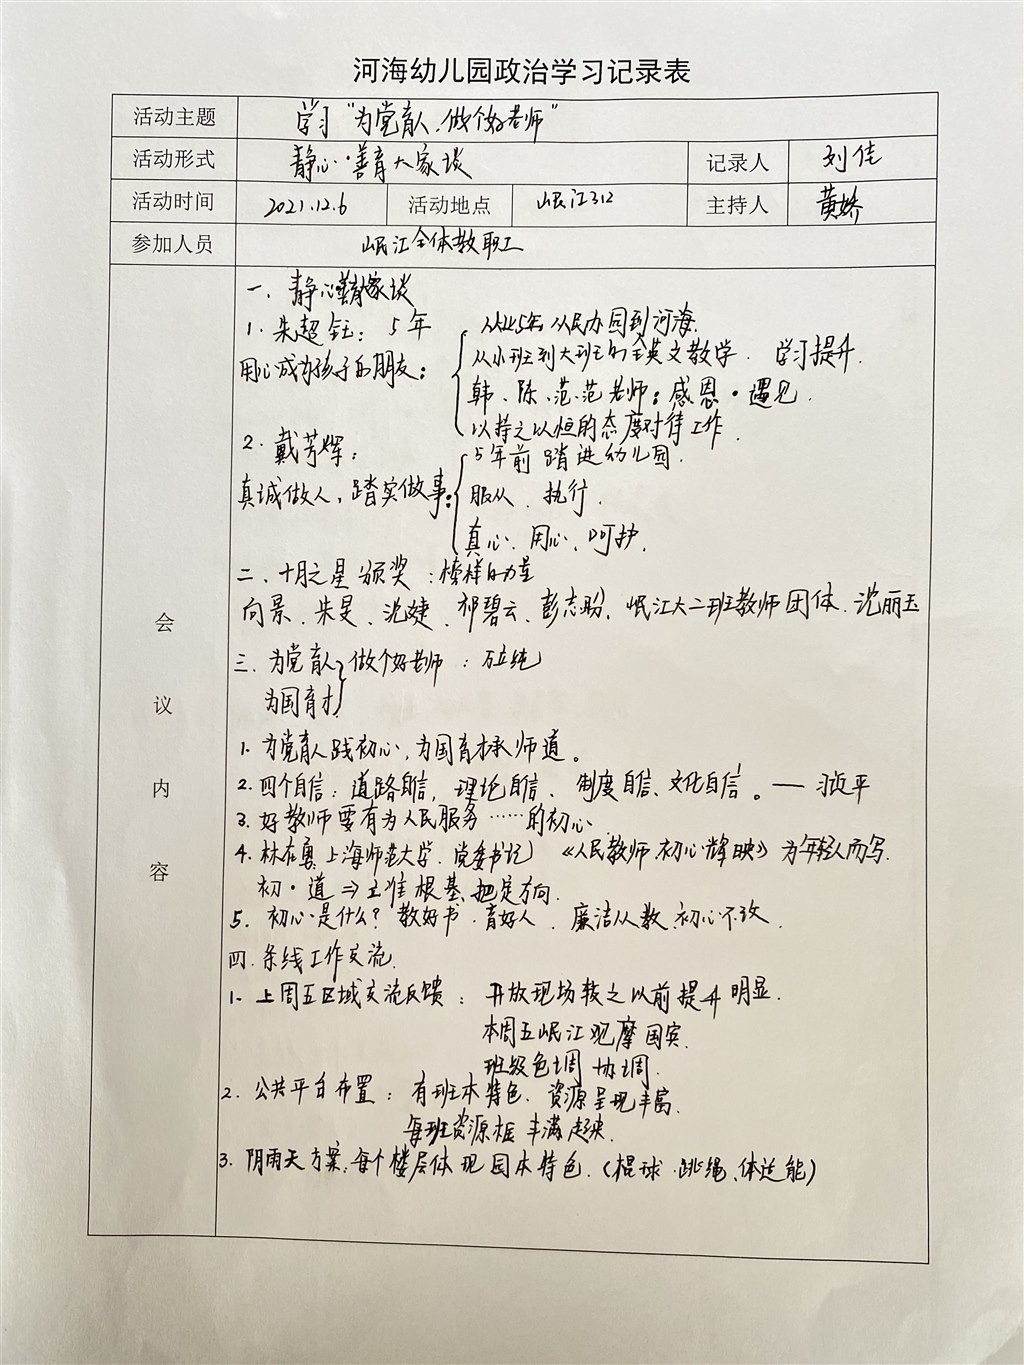 河海幼儿园政治学习记录表
活动主题 学习“为党育人,做个好老师”
活动形式 静心·善育大家谈 记录人 刘佳
活动时间 2021.12.6 活动地点 岷江312 主持人 黄娇
参加人员 岷江全体教职工
会议内容
一、静心善育大家谈
1、朱超钰:5年 从业5年,从民办园到河海.
用心成为孩子的朋友: 从小班到大班的全英文教学. 学习提升.
韩、陈、范、范老师:感恩·遇见.
以持之以恒的态度对待工作.
2、戴芳辉: 5年前踏进幼儿园.
真诚做人,踏实做事: 服从、执行.
真心、用心、呵护.
二、十月之星颁奖:榜样的力量
向景、朱旻、沈婕、祁碧云、彭志聆、岷江大二班教师团体、沈丽玉
三、为党育人 做个好老师:万立纯
为国育才
1. 为党育人践初心,为国育才承师道。
2. 四个自信:道路自信,理论自信、制度自信、文化自信。——习近平
3. 好教师要有为人民服务……的初心.
4. 林在勇 上海师范大学.党委书记 《人民教师.初心辉映》为年轻人而写.
初·道⇒立准根基、把定方向.
5. 初心是什么?教好书、育好人、廉洁从教、初心不改.
四、条线工作交流.
1. 上周五区域交流反馈:开放现场较之以前提升明显.
本周五岷江观摩国宾.
班级色调协调.
2. 公共平台布置:有班本特色.资源呈现丰富.
每班资源柜丰满起来.
3. 阴雨天方案:每个楼层体现园本特色.(棍球、跳绳、体适能)